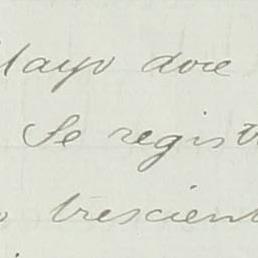 Mayo doce
Se regist
o trescient